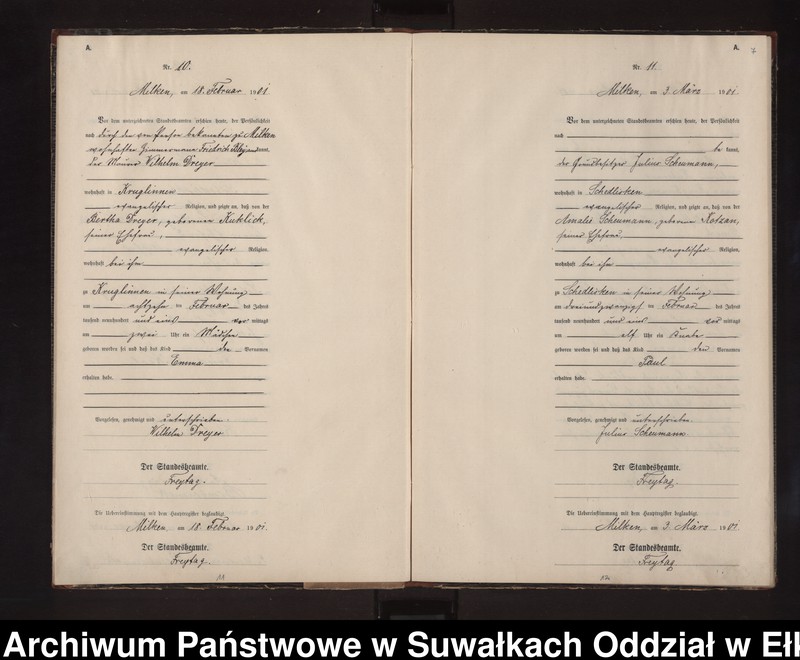 A.
Nr. 10.
Milken, am 18. Februar 1901
Vor dem unterzeichneten Standesbeamten erschien heute, der Persönlichkeit
nach durch den von Person bekannten zu Milken
wohnhaften Zimmermann Friedrich kannt,
der Maurer Wilhelm Dreyer
wohnhaft in Kruglinnen
evangelischer Religion, und zeigte an, daß von der
Bertha Dreyer, geborenen Kuklick,
seiner Ehefrau,
evangelischer Religion,
wohnhaft bei ihm
zu Kruglinnen in seiner Wohnung
am achtzehn ten Februar des Jahres
tausend neunhundert und eins vor mittags
um zwei Uhr ein Mädchen
geboren worden sei und daß das Kind den Vornamen
Emma
erhalten habe.
Vorgelesen, genehmigt und unterschrieben.
Wilhelm Dreyer
Der Standesbeamte.
Freytag.
Die Uebereinstimmung mit dem Hauptregister beglaubigt
Milken, am 18. Februar 1901.
Der Standesbeamte.
Freytag.
A.
7
Nr. 11.
Milken, am 3. März 1901
Vor dem unterzeichneten Standesbeamten erschien heute, der Persönlichkeit
nach
be kannt,
der Grundbesitzer Julius Scheumann,
wohnhaft in Schedlisken
evangelischer Religion, und zeigte an, daß von der
Amalie Scheumann, geborene Kotzan,
seiner Ehefrau
evangelischer Religion,
wohnhaft bei ihm
zu Schedlisken in seiner Wohnung
am dreiundzwanzigst ten Februar des Jahres
tausend neunhundert und eins vor mittags
um elf Uhr ein Knabe
geboren worden sei und daß das Kind den Vornamen
Paul
erhalten habe.
Vorgelesen, genehmigt und unterschrieben.
Julius Scheumann
Der Standesbeamte.
Freytag.
Die Uebereinstimmung mit dem Hauptregister beglaubigt
Milken, am 3. März 1901
Der Standesbeamte.
Freytag
Archiwum Państwowe w Suwałkach Oddział w Ełk